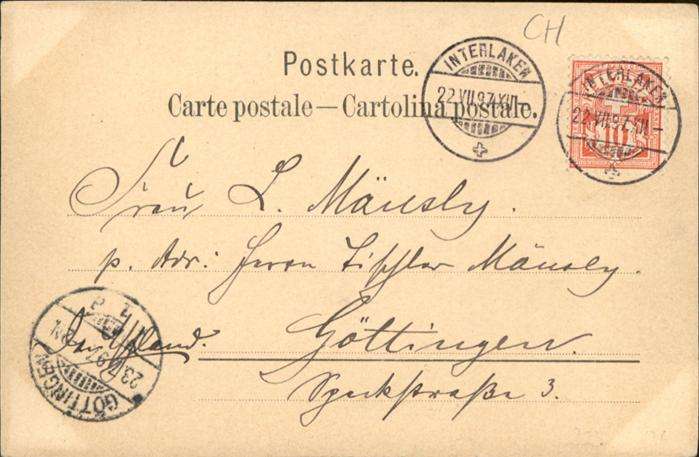 CH
Postkarte.
Carte postale — Cartolina postale.
INTERLAKEN
22.VII.97.XVI-
INTERLAKEN
22.VII.97.XVI-
10
Frau L. Mänsly.
p. Adr: Herrn Tischler Mänsly.
Deutschland.
Göttingen.
Speckstraße 3.
GÖTTINGEN
23.7.97